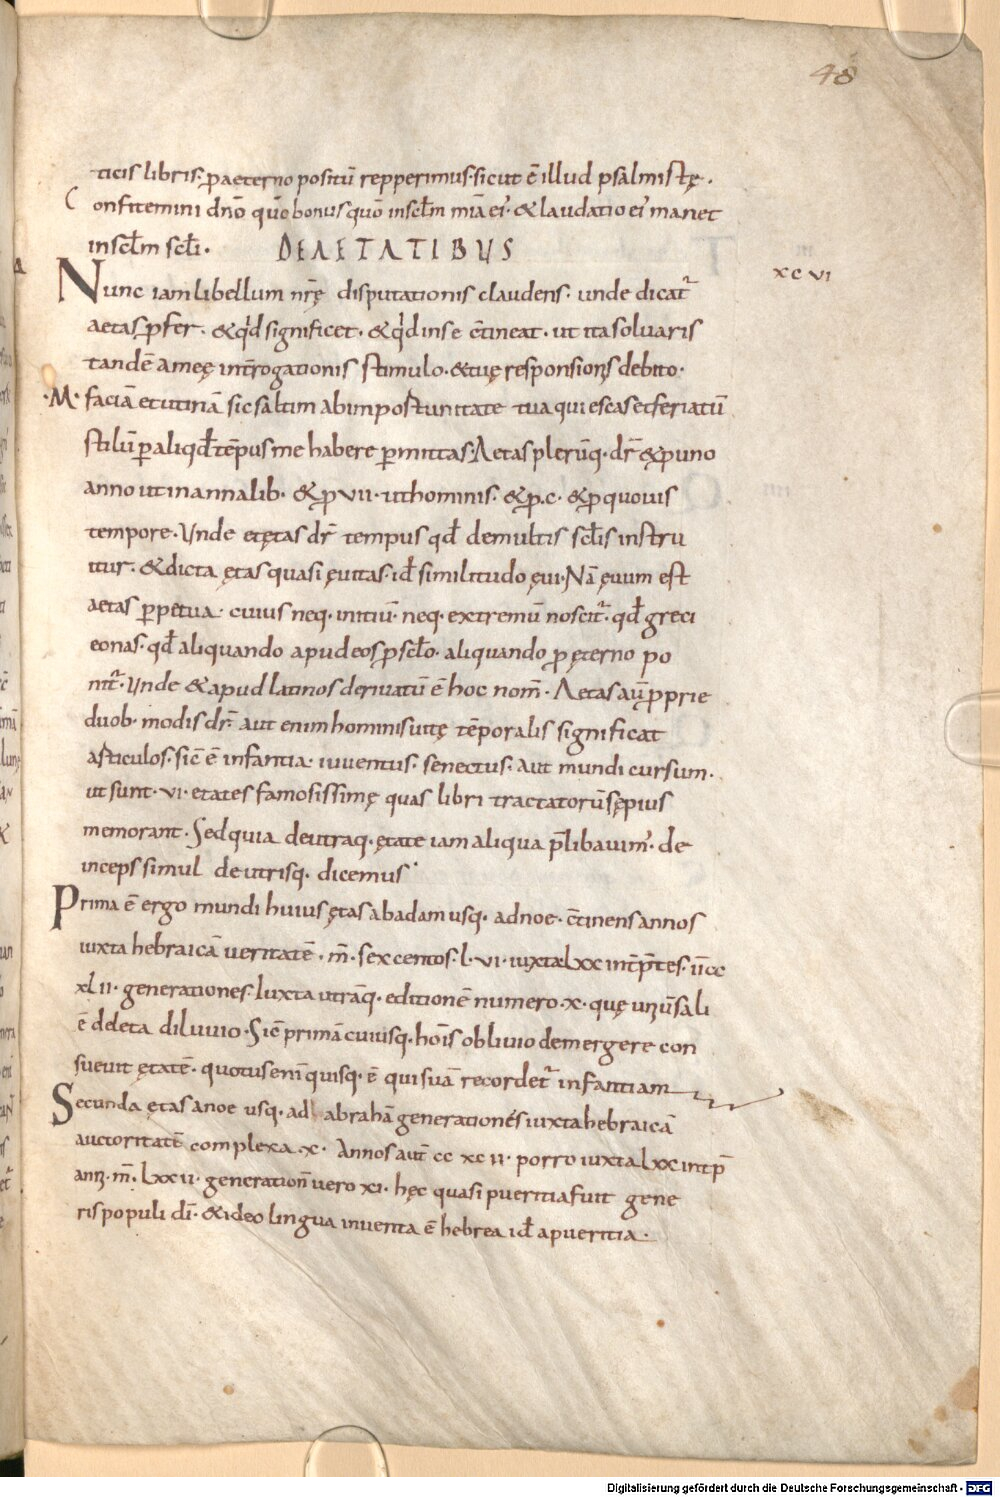 48
ticis libris· p aeterno positū repperimus· sicut ē illud psalmistę·
Confitemini dn̄o qm̄ bonus quō in sc̄lm mia ei· & laudatio ei manet
in sc̄lm sc̄li· DE AETATIBUS
xcvi
Nunc iam libellum nr̄ę disputationis claudens· unde dicat̄
aetas p̄fer· & qd significet· & qd in se c̄tineat· ut ita soluaris
tandē a meę int̄rogationis stimulo· & tuę responsionis debito·
·M· faciā et utinā sic saltim ab importunitate tua quiescas et feriatū
stilū p aliqd̄ tēpus me habere p̄mittas· Aetas plerūq· dr̄ & p uno
anno ut in annalib· & p vii· ut hominis· & p c· & p quovis
tempore· Unde et ętas dr̄ tempus qd̄ de multis sc̄lis instru
itur· & dicta ętas quasi ęuitas· id̄ similitudo ęui· Nā ęuum est
aetas p̄petua· cuius neq· initiū· neq· extremū noscit̄· qd̄ greci
eonas· qd̄ aliquando apud eos p sc̄lo· aliquando p ęterno po
nit̄· Unde & apud latinos deriuatū ē hoc nom̄· Aetas aū p̄prie
duob· modis dr̄· aut enim hominis uitę tēporalis significat
articulos· sic̄ ē infantia· iuuentus· senectus· aut mundi cursum·
ut sunt· vi· etates famosissimę quas libri tractatorū sępius
memorant· Sed quia de utraq· ętate iam aliqua p̄libauim· de
inceps simul de utrisq· dicemus·
Prima ē ergo mundi huius ętas ab adam usq· ad noe· c̄tinens annos
iuxta hebraicā ueritatē· m̄· sexcentos· l· vi· iuxta lxx int̄p̄tes· īicc
xlii· generationes· Iuxta utrāq· editionē numero· x· quę uniūsali
ē deleta diluuio· Sic̄ primā cuiusq· hoīs obliuio demergere con
sueuit ętatē· quotus enī quisq· ē qui suā recordet̄ infantiam
Secunda ętas a noe usq· ad abrahā generationes iuxta hebraicā
auctoritatē complexa· x· Annos aut̄ cc xcii· porro iuxta lxx int̄p̄
ann̄· m̄· lxxii· generation̄ uero xi· hęc quasi pueritia fuit gene
ris populi dī· & ideo lingua inuenta ē hebrea id̄ a pueritia·
Digitalisierung gefördert durch die Deutsche Forschungsgemeinschaft - DFG